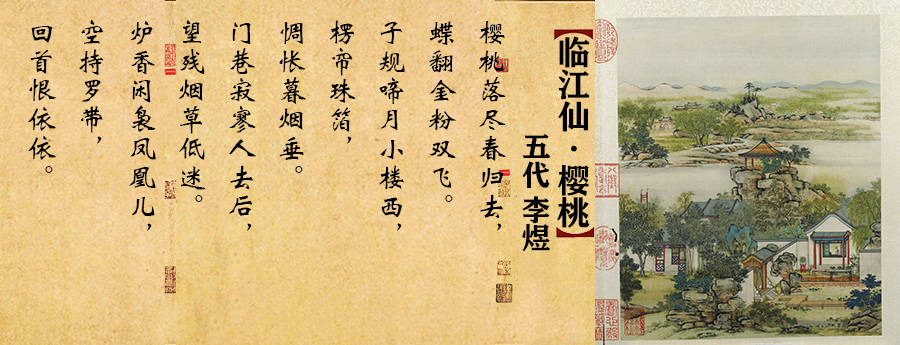 【临江仙·樱桃】
五代 李煜
樱桃落尽春归去，
蝶翻金粉双飞。
子规啼月小楼西，
楞帝珠箔，
惆怅暮烟垂。
门巷寂寥人去后，
望残烟草低迷。
炉香闲袅凤凰儿，
空持罗带，
回首恨依依。